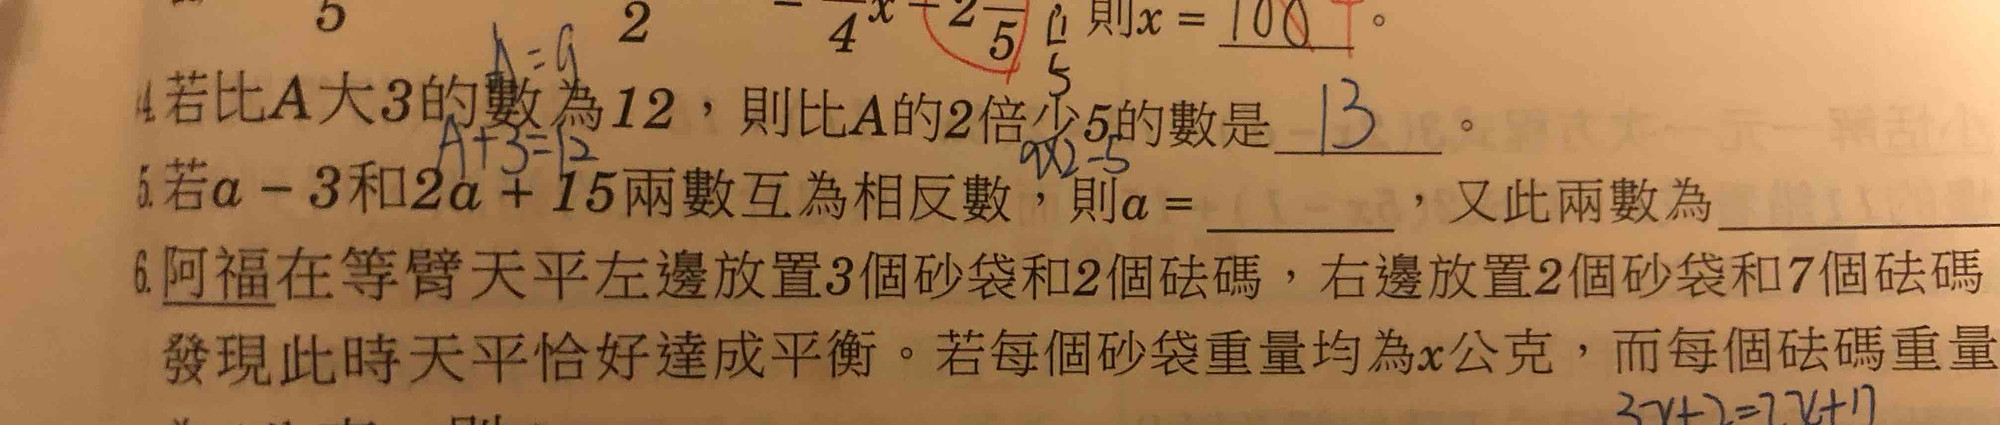 5 2 4 x 2 5 則x = 100。
A=9 5
4.若比A大3的數為12，則比A的2倍少5的數是 13 。
A+3=12 9×2-5
5.若a－3和2a＋15兩數互為相反數，則a＝ ，又此兩數為
6.阿福在等臂天平左邊放置3個砂袋和2個砝碼，右邊放置2個砂袋和7個砝碼
發現此時天平恰好達成平衡。若每個砂袋重量均為x公克，而每個砝碼重量